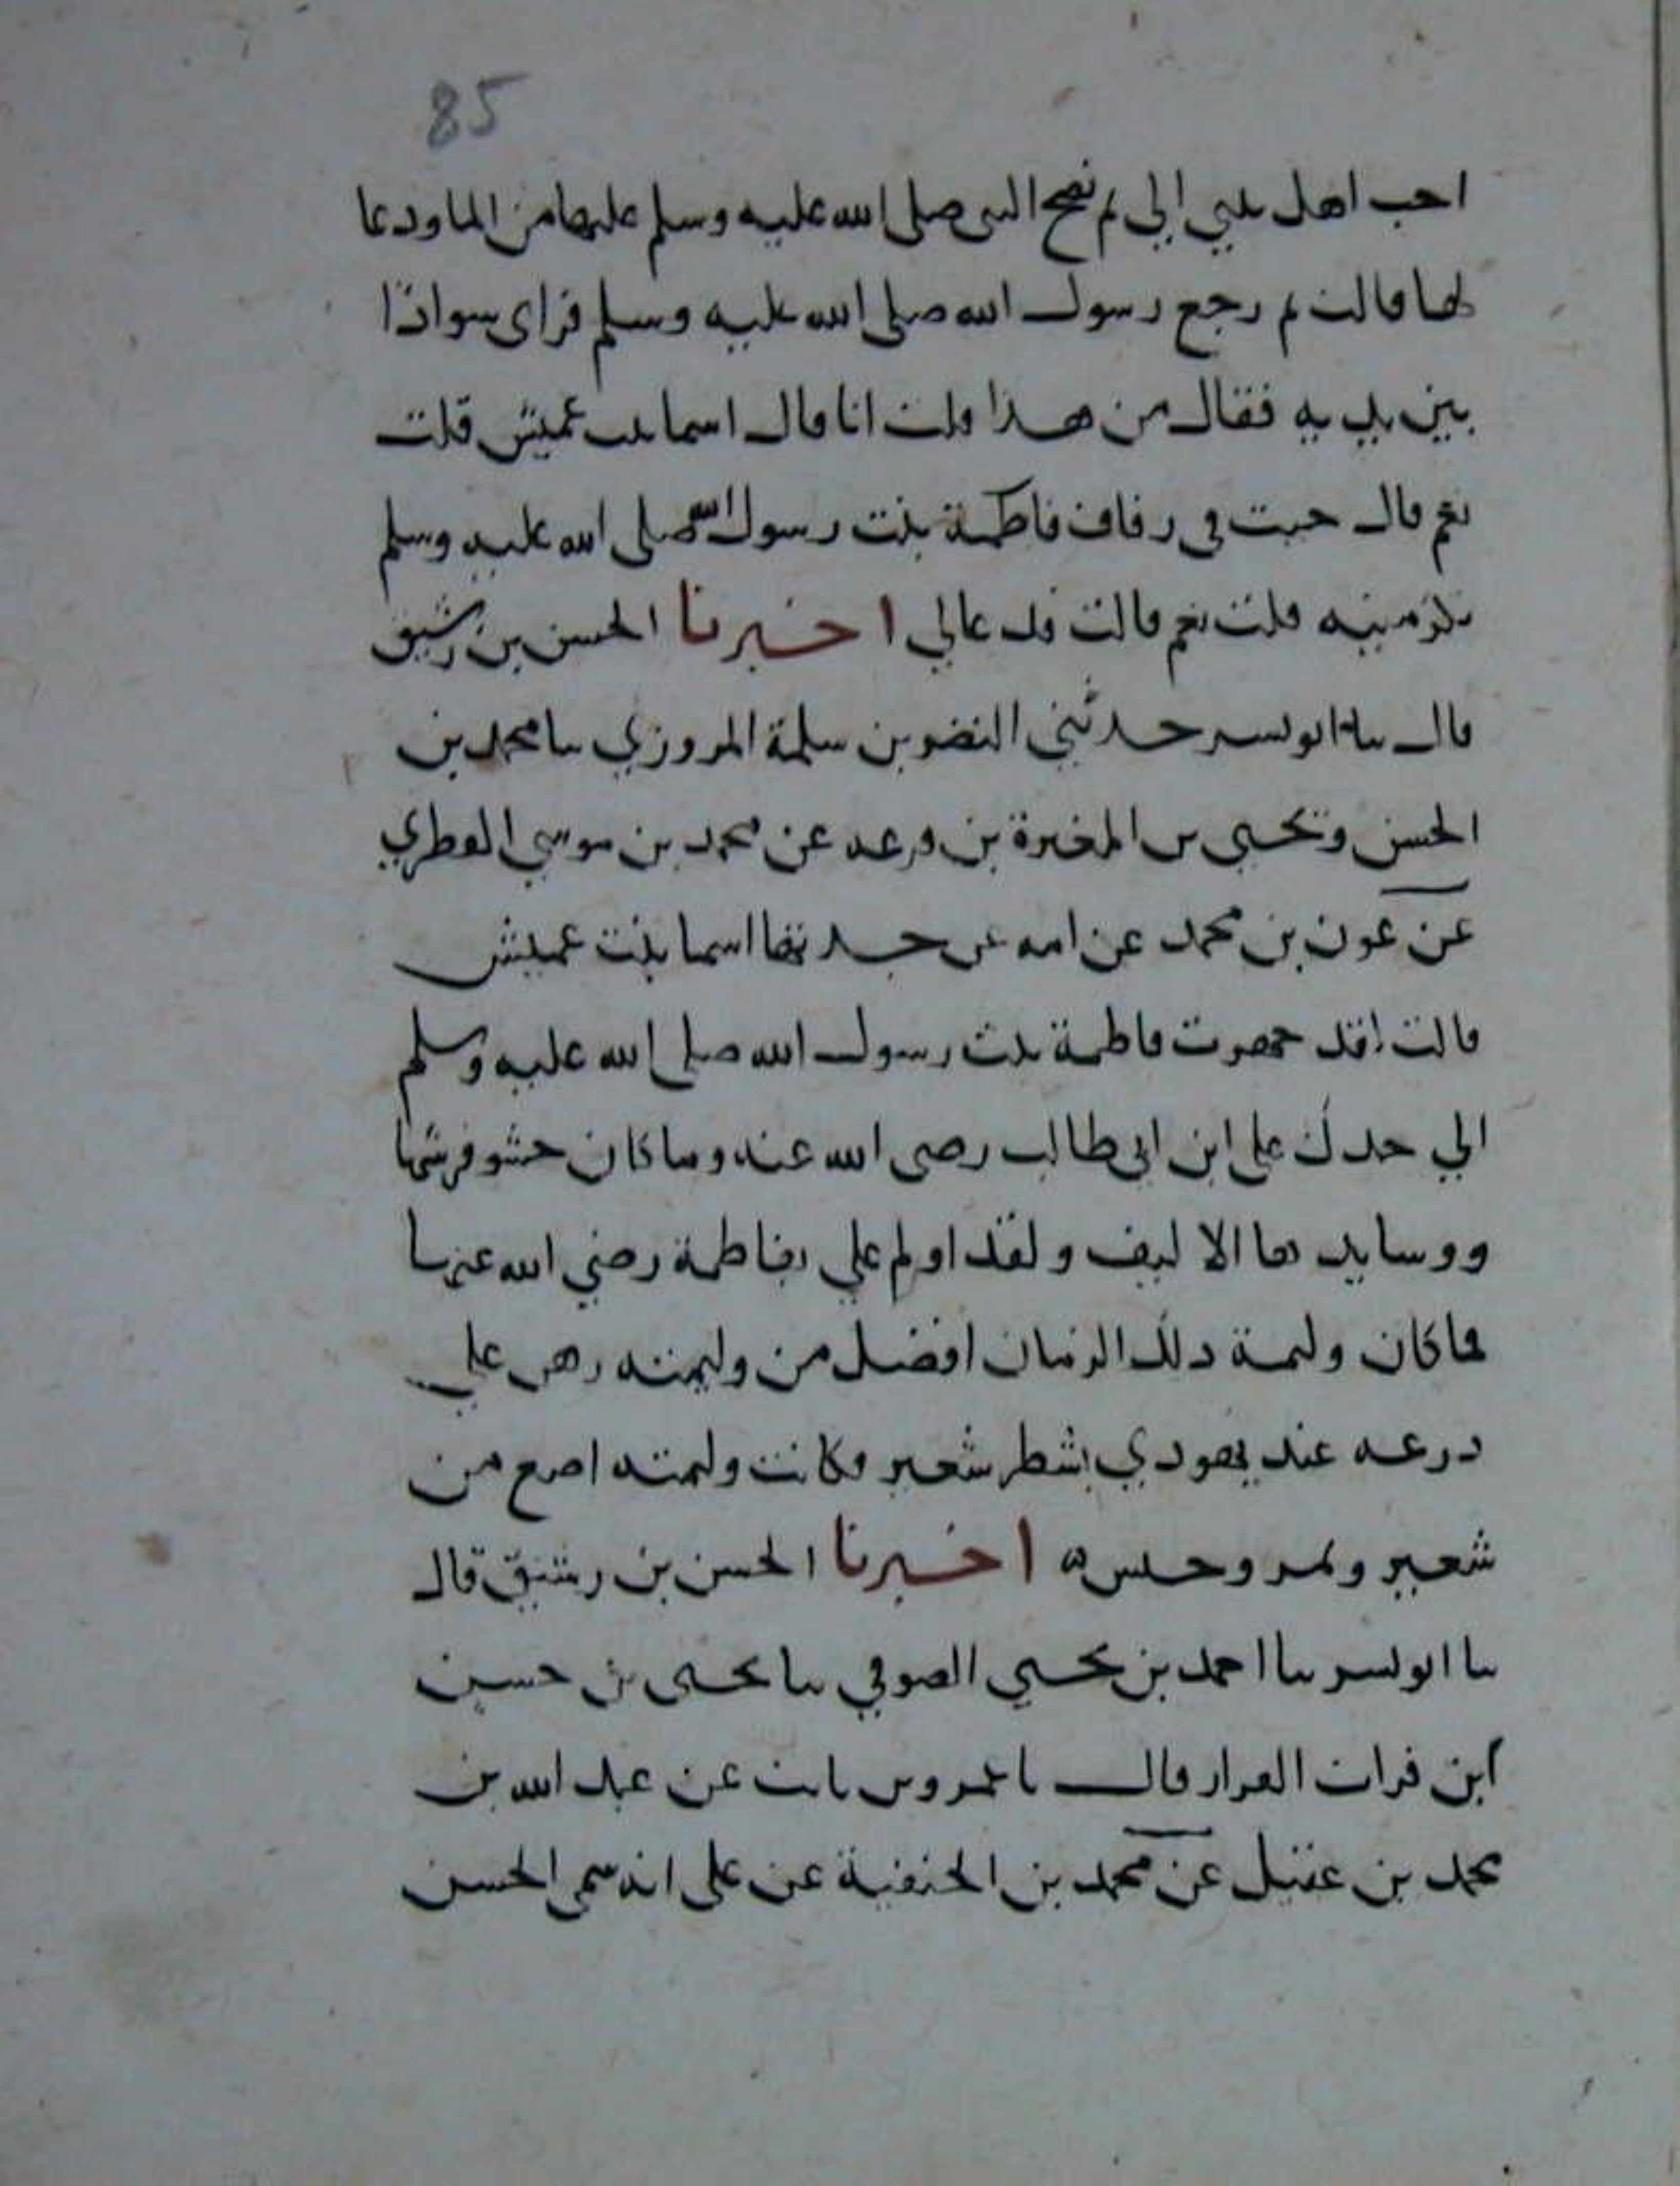 85
احب اهل بيتي الي ثم نضح النبي صلى الله عليه وسلم عليهما من الما ودعا
لهما قالت ثم رجع رسول الله صلى الله عليه وسلم فراى سوادا
بين يديه فقال من هذا قلت انا قال اسما بنت عميش قلت
نعم قال جيت في زفاف فاطمة بنت رسول الله صلى الله عليه وسلم
تكرمينه قلت نعم قالت فدعا لي اخبرنا الحسن بن رشيق
قال نا ابو بسر حدثني النضر بن سلمة المروزي نا محمد بن
الحسن ويحيى بن المغيرة بن عن محمد بن موسي الفطري
عن عون بن محمد عن امه عن جدتها اسما بنت عميش
قالت لقد جهزت فاطمة بنت رسول الله صلى الله عليه وسلم
الي جدك على ابن ابي طالب رضى الله عنه وما كان حشو فرشها
ووسايدها الا ليف ولقد اولم علي بفاطمة رضي الله عنهما
فما كان وليمة ذلك الزمان افضل من وليمته رهن علي
درعه عند يهودي بشطر شعير وكانت وليمته اصع من
شعير وتمر وحيس ه اخبرنا الحسن بن رشيق قال
نا ابو بسر نا احمد بن يحيي الصوفي نا يحيى بن حسين
ابن فرات القزاز قال نا عمرو بن ثابت عن عبد الله بن
محمد بن عقيل عن محمد بن الحنفية عن على انه سمى الحسن